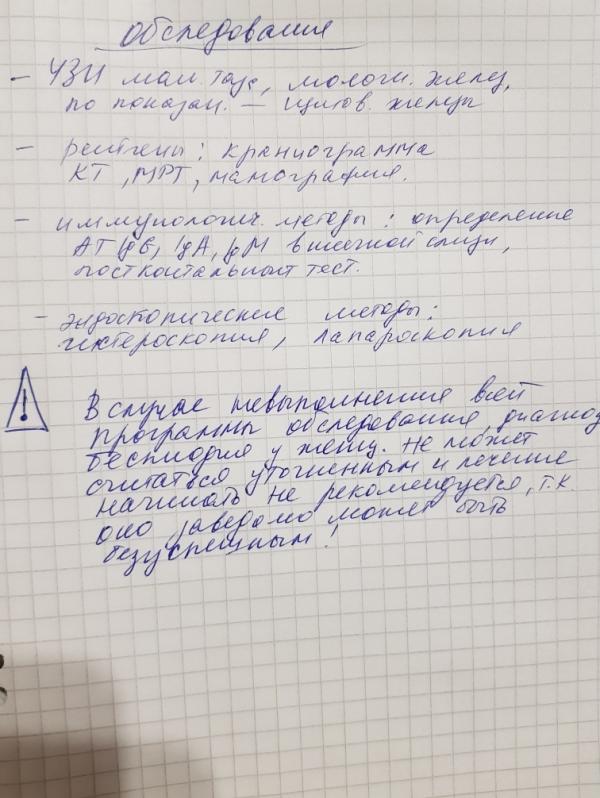 обследования
- УЗИ мал. таза, молочн. желез,
по показан. - щитов. железы
- рентгены: краниограмма
КТ, МРТ, мамография.
- иммунологич. методы: определение
АТ IgG, IgA, IgM в шеечной слизи,
посткоитальный тест.
- эндоскопические методы:
гистероскопия, лапароскопия
! В случае невыполнения всей
программы обследования, диагноз
бесплодия у женщ. не может
считаться уточненным и лечение
начинать не рекомендуется, т.к
оно заведомо может быть
безуспешным!